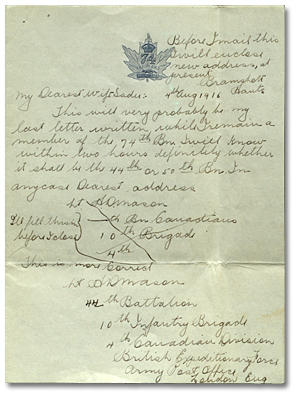 74
Before I mail this
I will enclose
new address, at
present
Bramshott
Hants
4th Aug 1916
My Dearest Wife Sadie:
This will very probably be my
last letter written, while I remain a
member of the 74th Bn. I will know
within two hours definitely whether
it shall be the 44th or 50th Bn. In
anycase Dearest address
Lt. A D Mason
th Bn Canadians
I'll fill this in
before I close
10th Brigade
4th
This is more Correct
Lt A D Mason
44th Battalion
10th Infantry Brigade
4th Canadian Division
British Expeditionary Force
Army Post Office
London Eng.